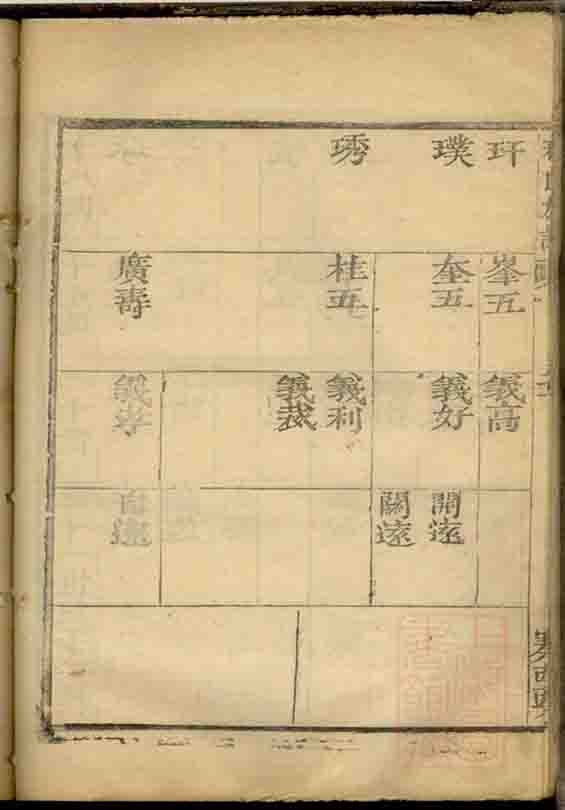 玕
璞
琇
峯五
奎五
桂五
廣壽
義高
義好
義利
義裁
義孝
開遠
關遠
自遠